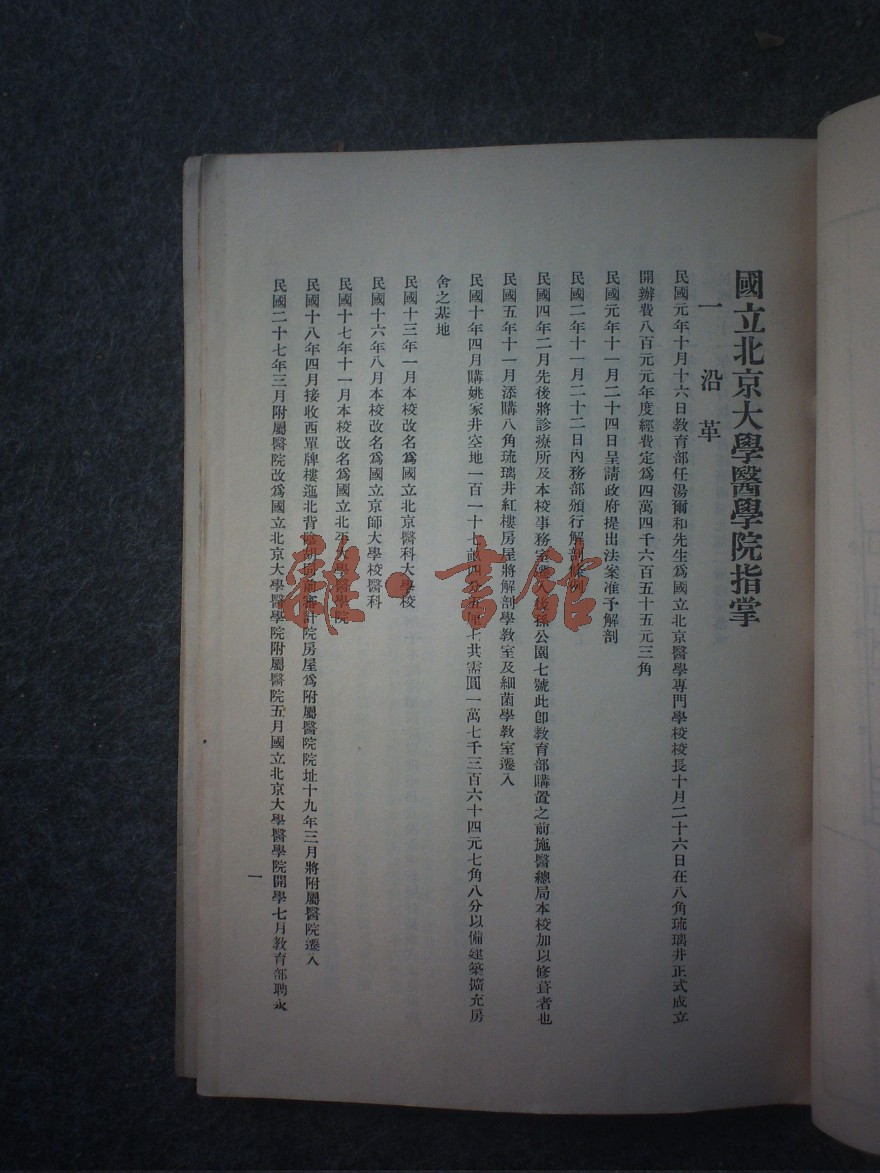 國立北京大學醫學院指掌
一 沿革
民國元年十月十六日教育部任湯爾和先生爲國立北京醫學專門學校校長十月二十六日在八角琉璃井正式成立
開辦費八百元元年度經費定爲四萬四千六百五十五元三角
民國元年十一月二十四日呈請政府提出法案准予解剖
民國二年十一月二十二日內務部頒行解剖條例
民國四年二月先後將診療所及本校事務室遷入後孫公園七號此卽教育部購置之前施醫總局本校加以修葺者也
民國五年十一月添購八角琉璃井紅樓房屋將解剖學教室及細菌學教室遷入
民國十年四月購姚家井空地一百一十七畝四分五厘七共需圓一萬七千三百六十四元七角八分以備建築擴充房
舍之基地
民國十三年一月本校改名爲國立北京醫科大學校
民國十六年八月本校改名爲國立京師大學校醫科
民國十七年十一月本校改名爲國立北平大學醫學院
民國十八年四月接收西單牌樓迤北背陰胡同前審計院房屋爲附屬醫院院址十九年三月將附屬醫院遷入
民國二十七年三月附屬醫院改爲國立北京大學醫學院附屬醫院五月國立北京大學醫學院開學七月教育部聘永
一
雜·書館